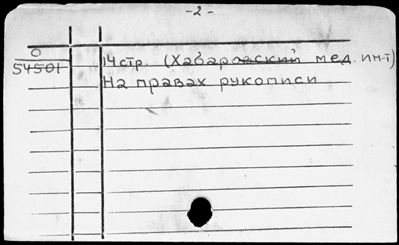 -2-
0
54501 14 стр. (Хабаровский мед. ин-т)
На правах рукописи